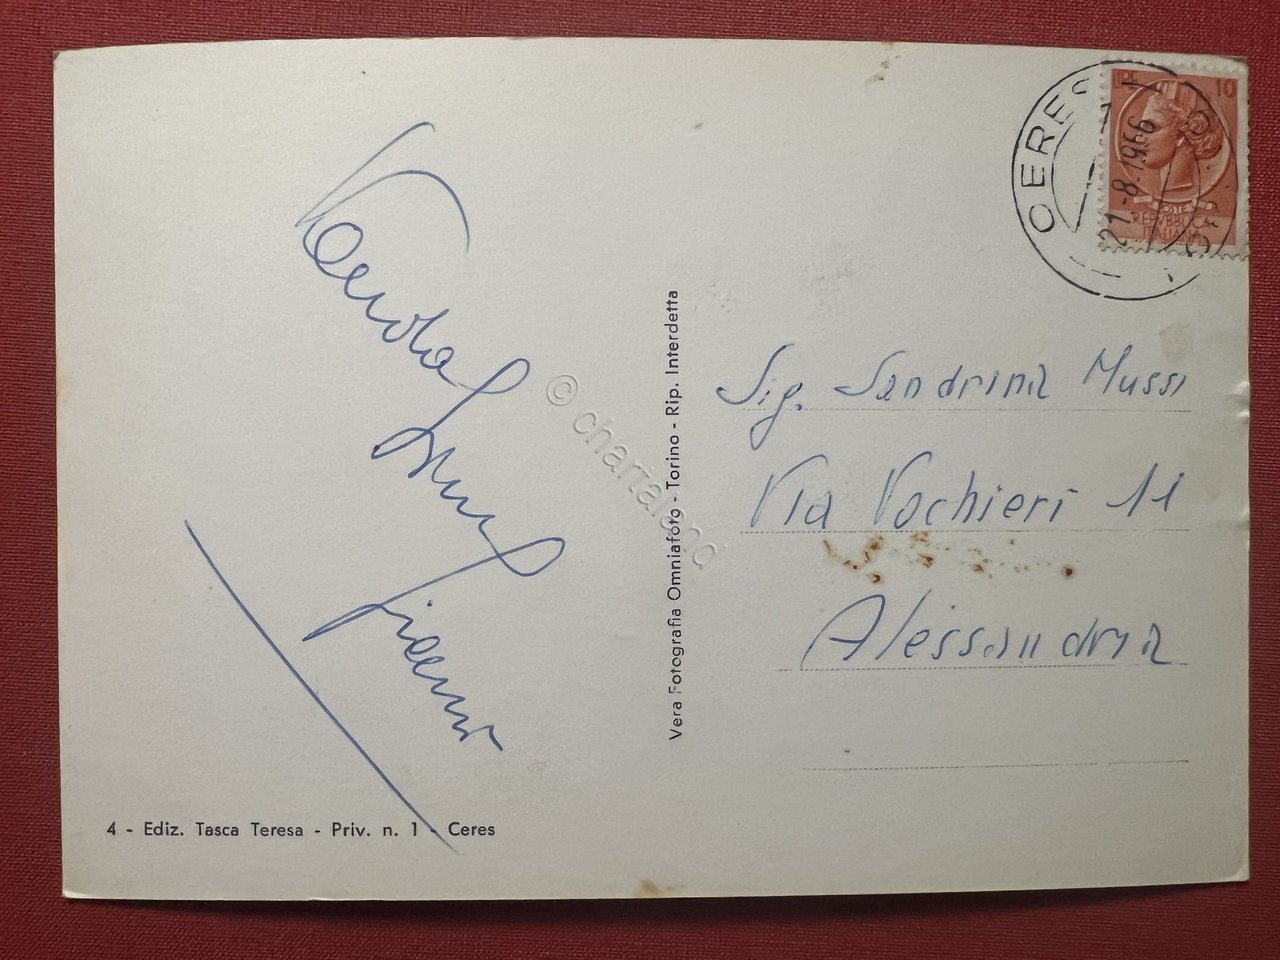 CERES
21-8.1966
LIRE 10
POSTE
REPUBBLICA
ITALIANA
Sig. Sandrina Mussi
Via Vochieri 11
Alessandria
Vera Fotografia Omniafoto - Torino - Rip. Interdetta
4 - Ediz. Tasca Teresa - Priv. n. 1 - Ceres
© chartaland